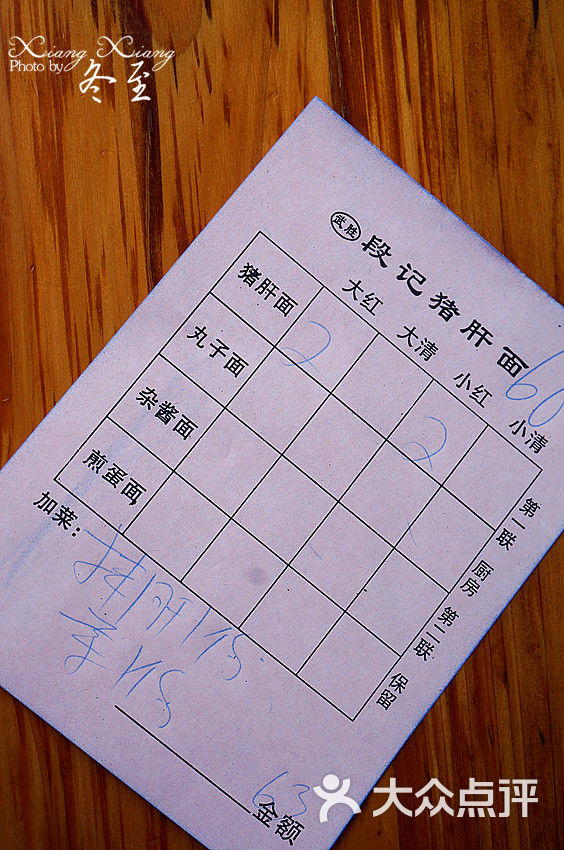 Xiang Xiang
Photo by 冬至
武胜
段记猪肝面
60
大红 大清 小红 小清
猪肝面 2 2
丸子面
杂酱面
煎蛋面
加菜:
第一联 厨房 第二联 保留
63
金额
大众点评